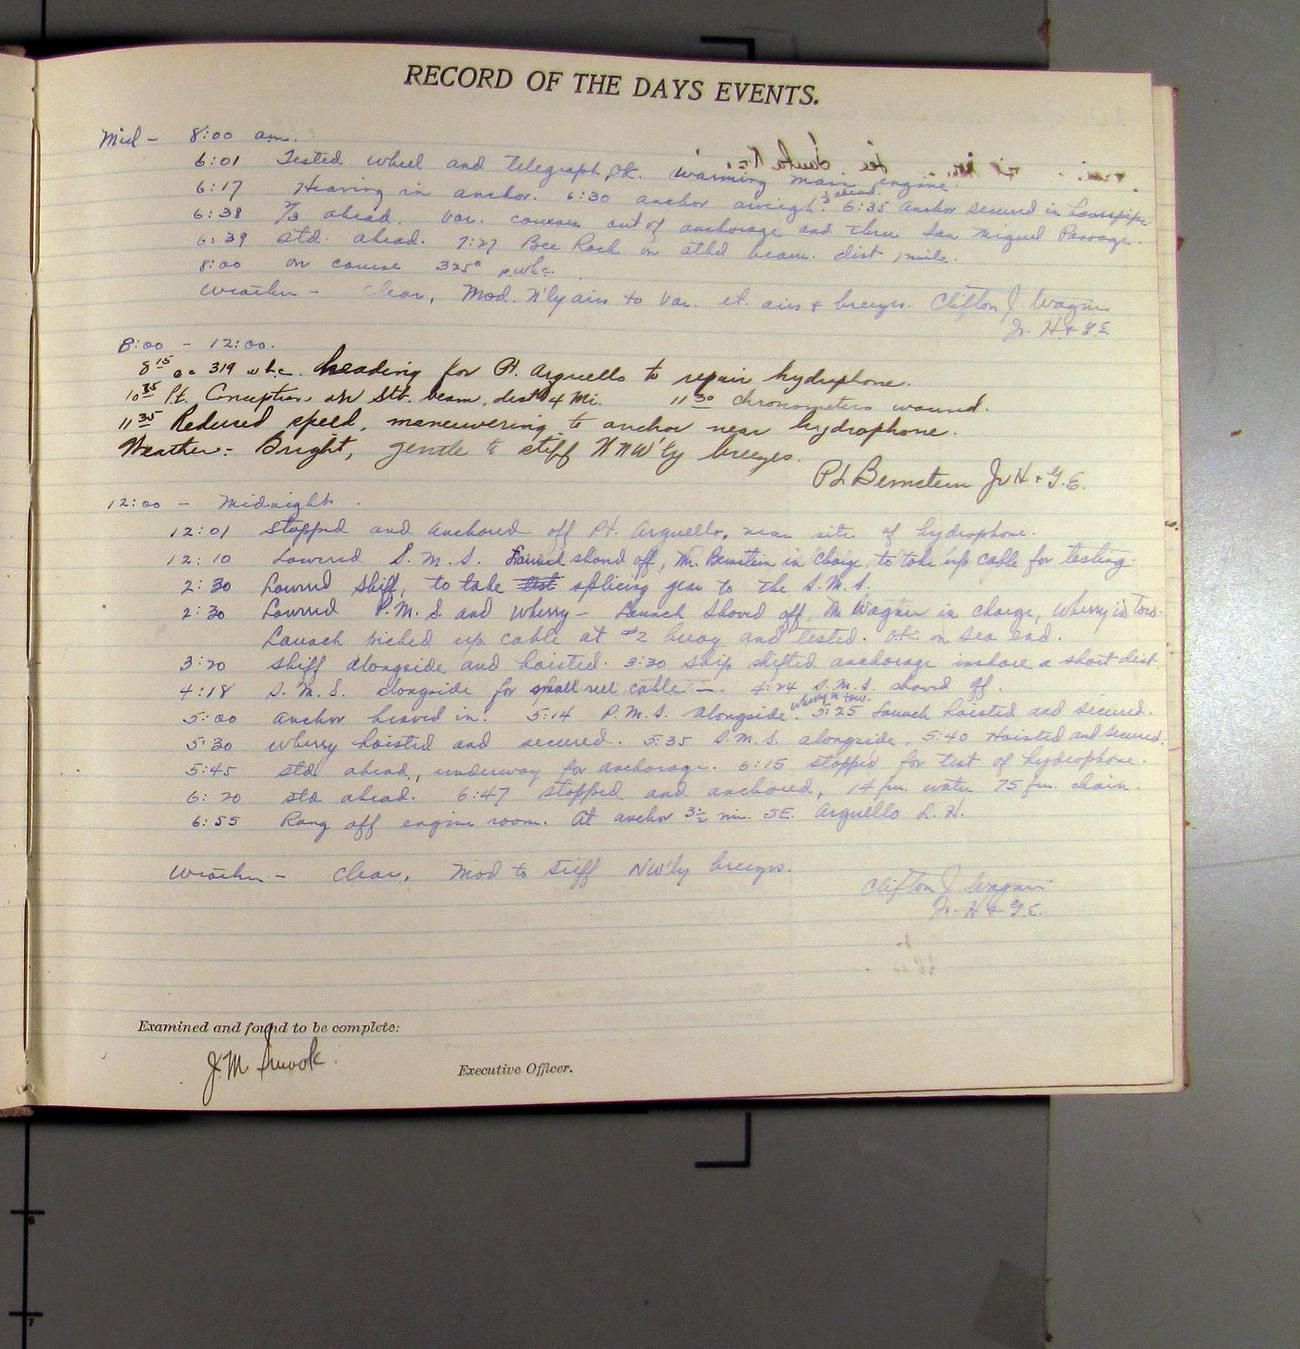 RECORD OF THE DAYS EVENTS.
Mid - 8:00 am.
6:01 Tested wheel and telegraph ok. Warming main engine.
6:17 Heaving in anchor. 6:30 anchor aweigh. ⅓ ahead. 6:35 Anchor secured in hawsepipe.
6:38 ⅔ ahead. Var. courses out of anchorage and thru San Miguel Passage.
6:39 Std. ahead. 7:27 Bee Rock on stbd beam. dist 1 mile.
8:00 on course 325° p.wh.c.
Weather - Clear, Mod. N'ly airs to Var. lt. airs & breezes. Clifton J. Wagner
Jr. H & G.E.
8:00 - 12:00.
8 15 cc 319 whc. heading for Pt. Arguello to repair hydrophone.
10 35 Pt. Conception on Stb. beam, dist 4 Mi. 11 30 chronometers wound.
11 35 Reduced speed, maneuvering to anchor near hydrophone.
Weather:- Bright, gentle to stiff NNW'ly breezes.
P L Bernstein Jr H & G.E.
12:00 - Midnight.
12:01 Stopped and anchored off Pt. Arguello, near site of hydrophone.
12:10 Lowered S.M.S. Launch shoved off, Mr. Bernstein in charge, to take up cable for testing.
2:30 Lowered skiff, to take test splicing gear to the S.M.S.
2:30 Lowered P.M.S. and wherry - Launch shoved off, Mr Wagner in charge, wherry in tow.
Launch picked up cable at #2 buoy and tested. OK on sea end.
3:20 Skiff alongside and hoisted. 3:30 Ship shifted anchorage inshore a short dist.
4:18 S.M.S. alongside for small reel cable -. 4:24 S.M.S. shoved off.
5:00 Anchor heaved in. 5:14 P.M.S. alongside wherry in tow. 5:25 Launch hoisted and secured.
5:30 Wherry hoisted and secured. 5:35 S.M.S. alongside, 5:40 Hoisted and secured.
5:45 Std ahead, underway for anchorage. 6:15 stopped for test of hydrophone.
6:20 Std ahead. 6:47 stopped and anchored, 14 fm. water 75 fm. chain.
6:55 Rang off engine room. At anchor 3½ mi. SE. Arguello L.H.
Weather - Clear, Mod to stiff NW'ly breezes.
Clifton J. Wagner
Jr. H & G.E.
Examined and found to be complete:
J. M.
Executive Officer.
6
7